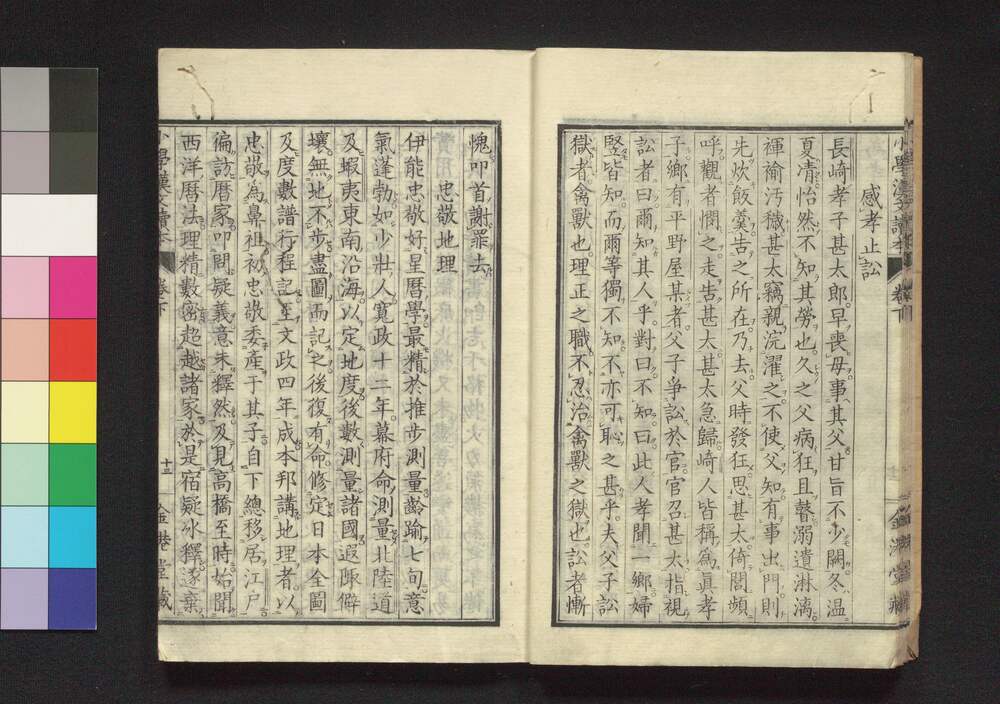 感孝止訟
長崎孝子甚太郎早喪母事其父甘旨不少闕冬温
夏凊怡然不知其勞也久之父病狂且瞽溺遺淋漓
褌褕汚穢甚太竊親浣濯之不使父知有事出門則
先炊飯羹告之所在乃去父時發狂思甚太倚閭頻
呼觀者憫之走告甚太甚太急歸崎人皆稱爲眞孝
子鄉有平野屋某者父子爭訟於官官召甚太指視
訟者曰爾知其人乎對曰不知曰此人孝聞一鄉婦
豎皆知而爾等獨不知不亦可恥之甚乎夫父子訟
獄者禽獸也理正之職不忍治禽獸之獄也訟者慚
愧叩首謝罪去
忠敬地理
伊能忠敬好星曆學最精於推步測量齡踰七旬意
氣蓬勃如少壯人寬政十二年幕府命測量北陸道
及蝦夷東南沿海以定地度後數測量諸國遐陬僻
壤無地不步盡圖而記之後復有命修定日本全圖
及度數譜行程記至文政四年成本邦講地理者以
忠敬為鼻祖初忠敬委產于其子自下總移居江戸
徧訪曆家叩問疑義意未釋然及見高橋至時始聞
西洋曆法理精數密超越諸家於是宿疑氷釋遂棄
小學漢文讀本 卷下 十三 金港堂藏